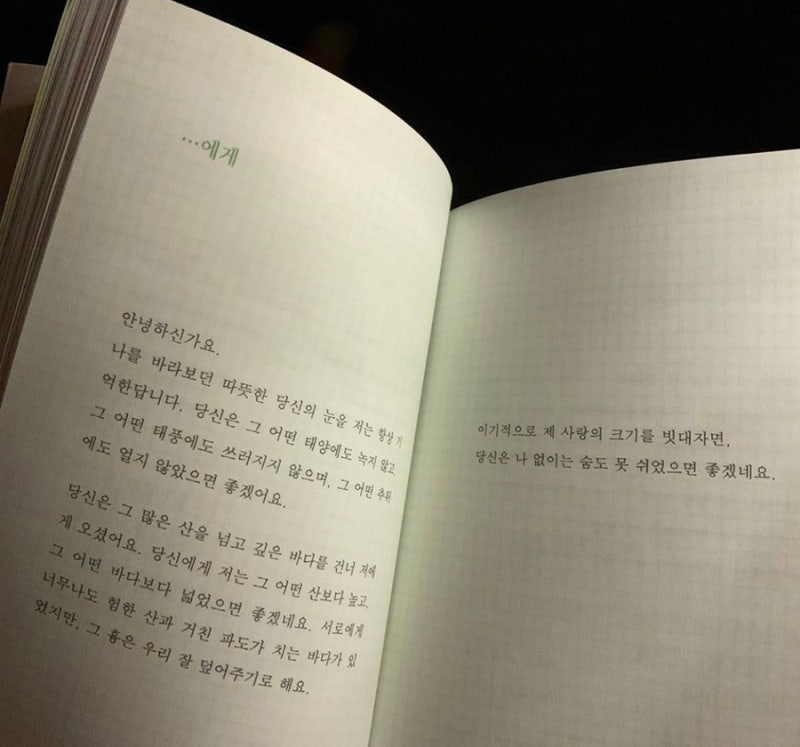 …에게
안녕하신가요.
나를 바라보던 따뜻한 당신의 눈을 저는 항상 기
억한답니다. 당신은 그 어떤 태양에도 녹지 않고,
그 어떤 태풍에도 쓰러지지 않으며, 그 어떤 추위
에도 얼지 않았으면 좋겠어요.
당신은 그 많은 산을 넘고 깊은 바다를 건너 저에
게 오셨어요. 당신에게 저는 그 어떤 산보다 높고,
그 어떤 바다보다 넓었으면 좋겠네요. 서로에게
너무나도 험한 산과 거친 파도가 치는 바다가 있
었지만, 그 흉은 우리 잘 덮어주기로 해요.
이기적으로 제 사랑의 크기를 빗대자면,
당신은 나 없이는 숨도 못 쉬었으면 좋겠네요.